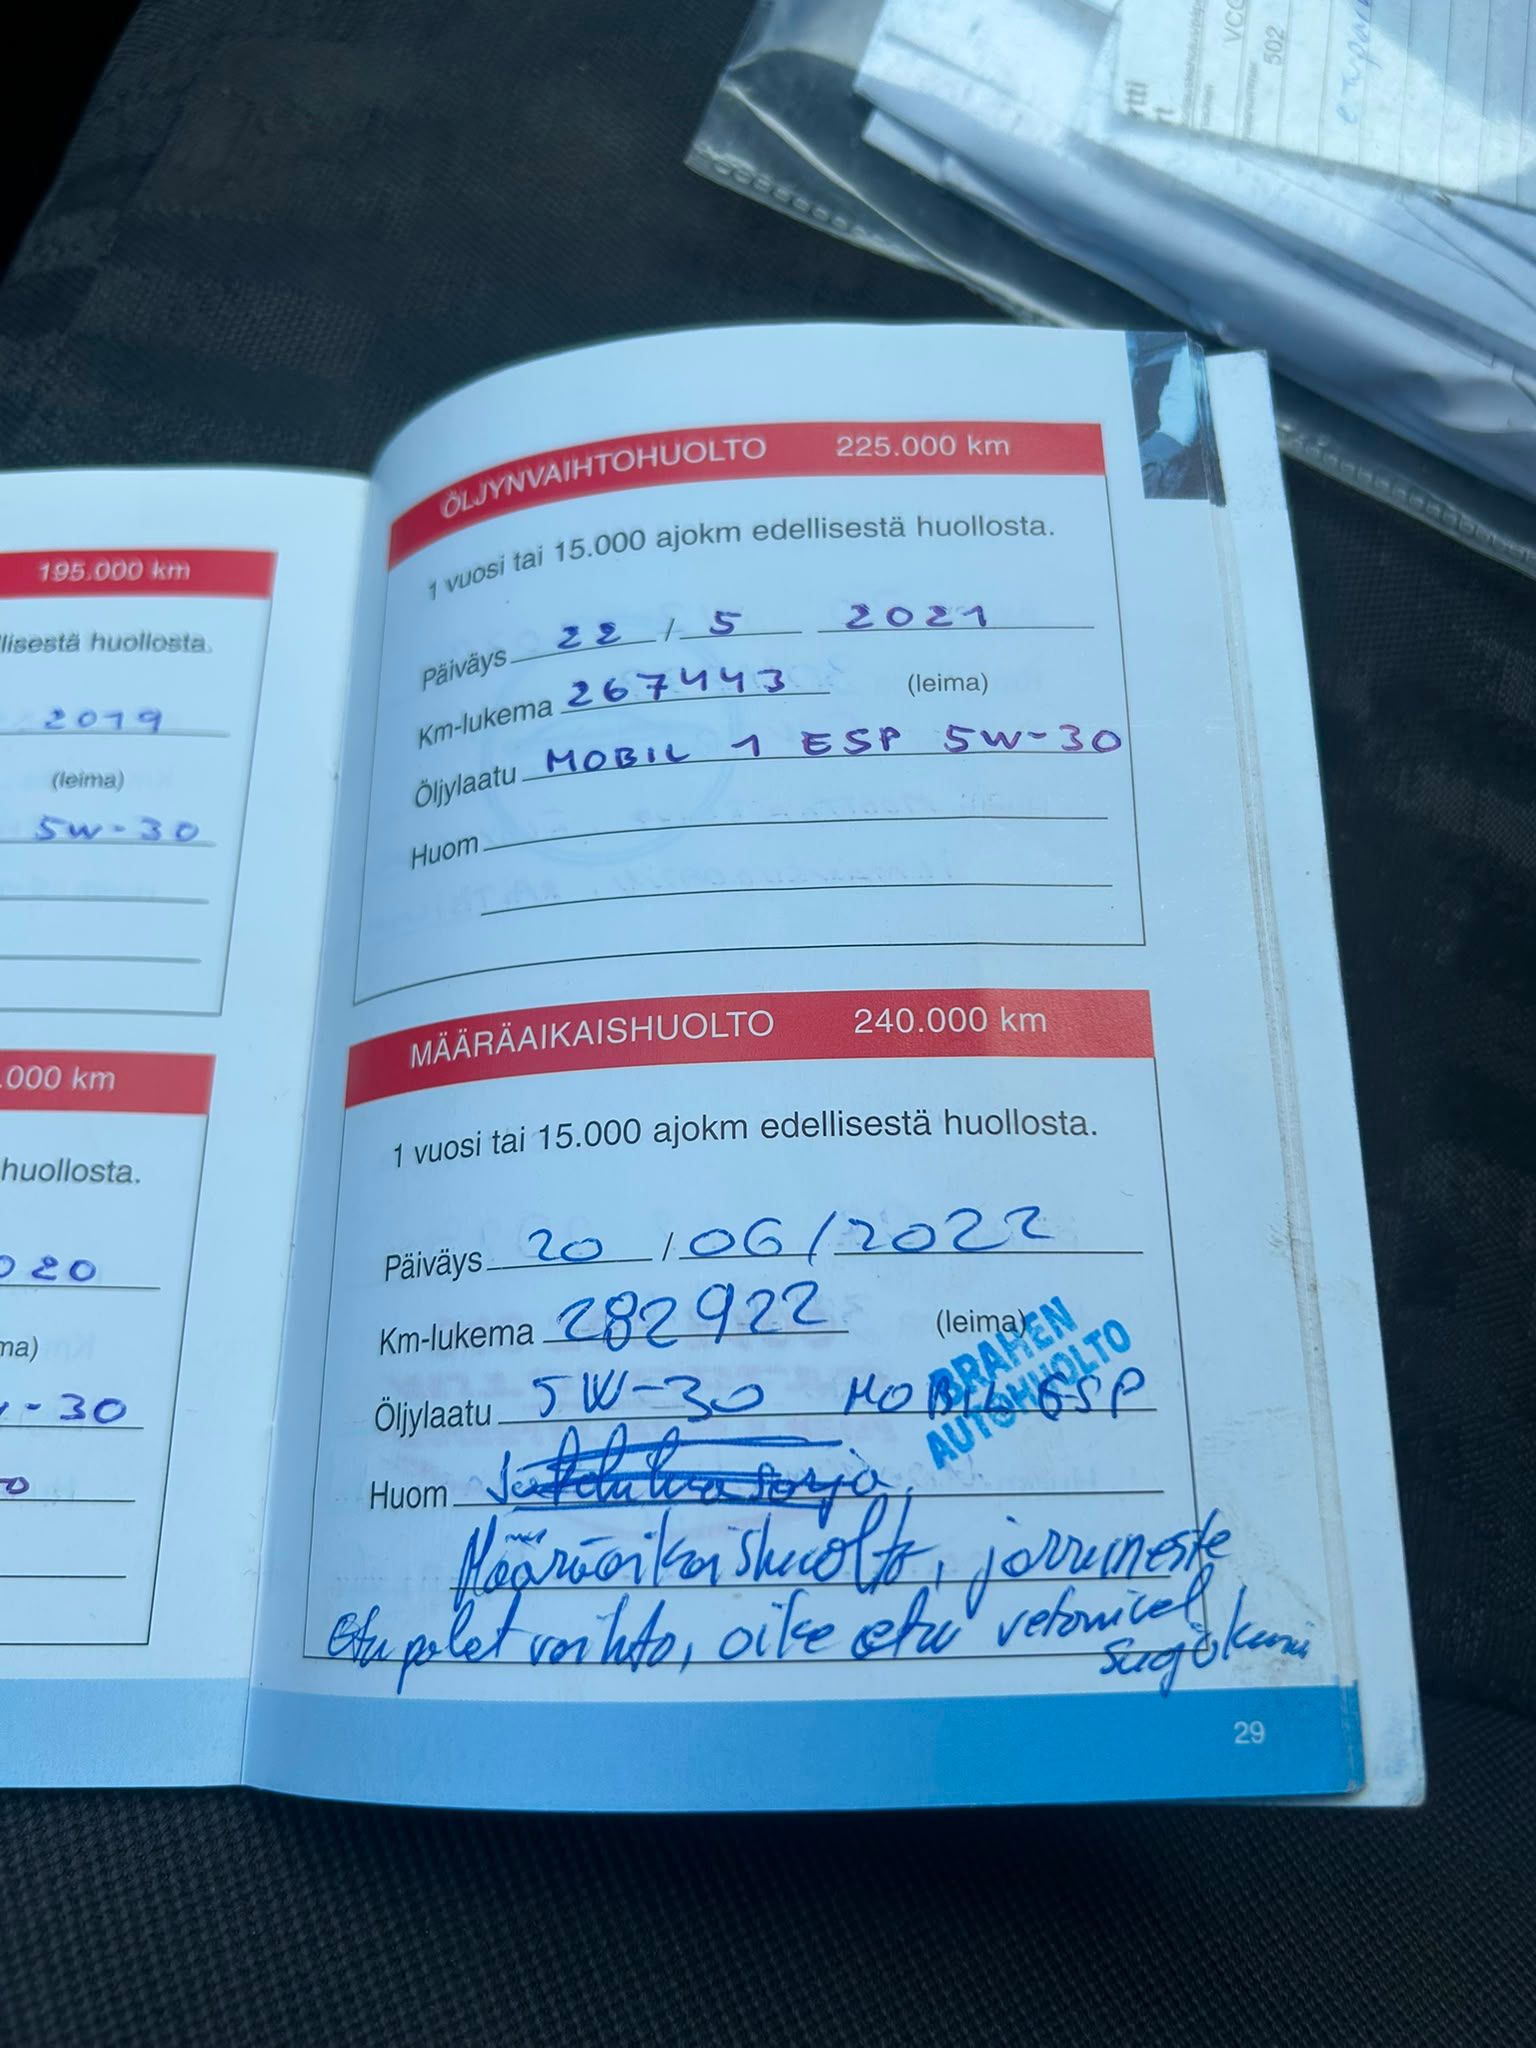 VCC
502
195.000 km
llisestä huollosta.
2019
(leima)
5W-30
.000 km
huollosta.
020
ma)
-30
ÖLJYNVAIHTOHUOLTO 225.000 km
1 vuosi tai 15.000 ajokm edellisestä huollosta.
Päiväys 22 / 5 2021
Km-lukema 267443 (leima)
Öljylaatu MOBIL 1 ESP 5W-30
Huom
MÄÄRÄAIKAISHUOLTO 240.000 km
1 vuosi tai 15.000 ajokm edellisestä huollosta.
Päiväys 20 / 06 / 2022
Km-lukema 282922 (leima)
BRAHEN
AUTOHUOLTO
Öljylaatu 5W-30 MOBIL ESP
Huom
Määräaikaishuolto, jarruneste
etu palat vaihto, oike etu vetonivel
suojakumi
29